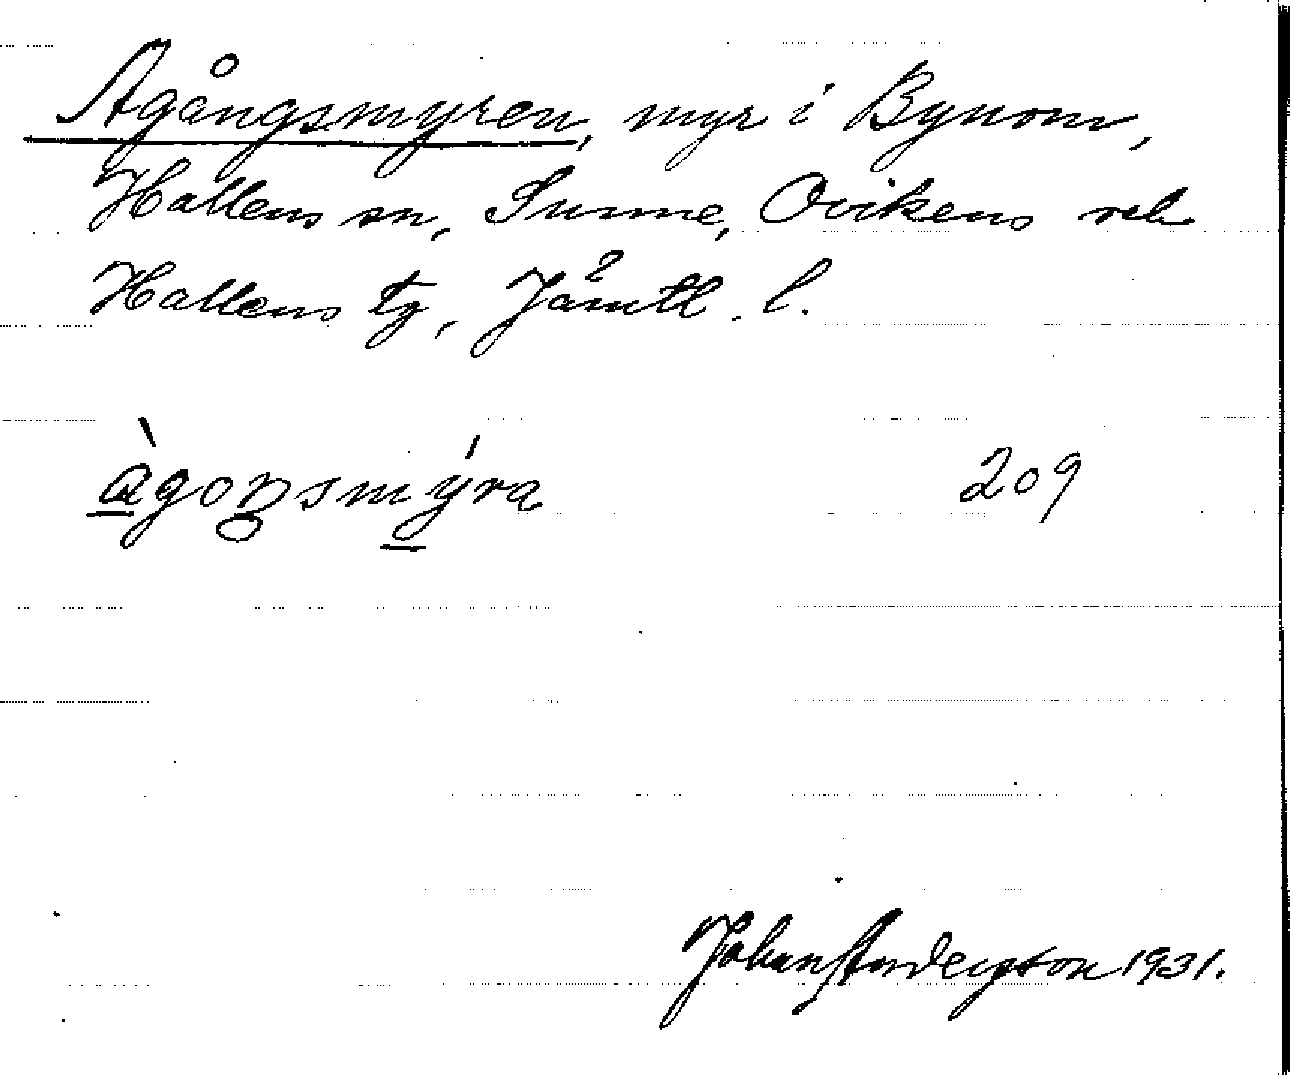 Agångsmyren, myr i Bynom,
Hallens sn, Sunne, Ovikens och
Hallens tg, Jämtl. l.
àgoŋsmýra 209
Johan Anderzon 1931.